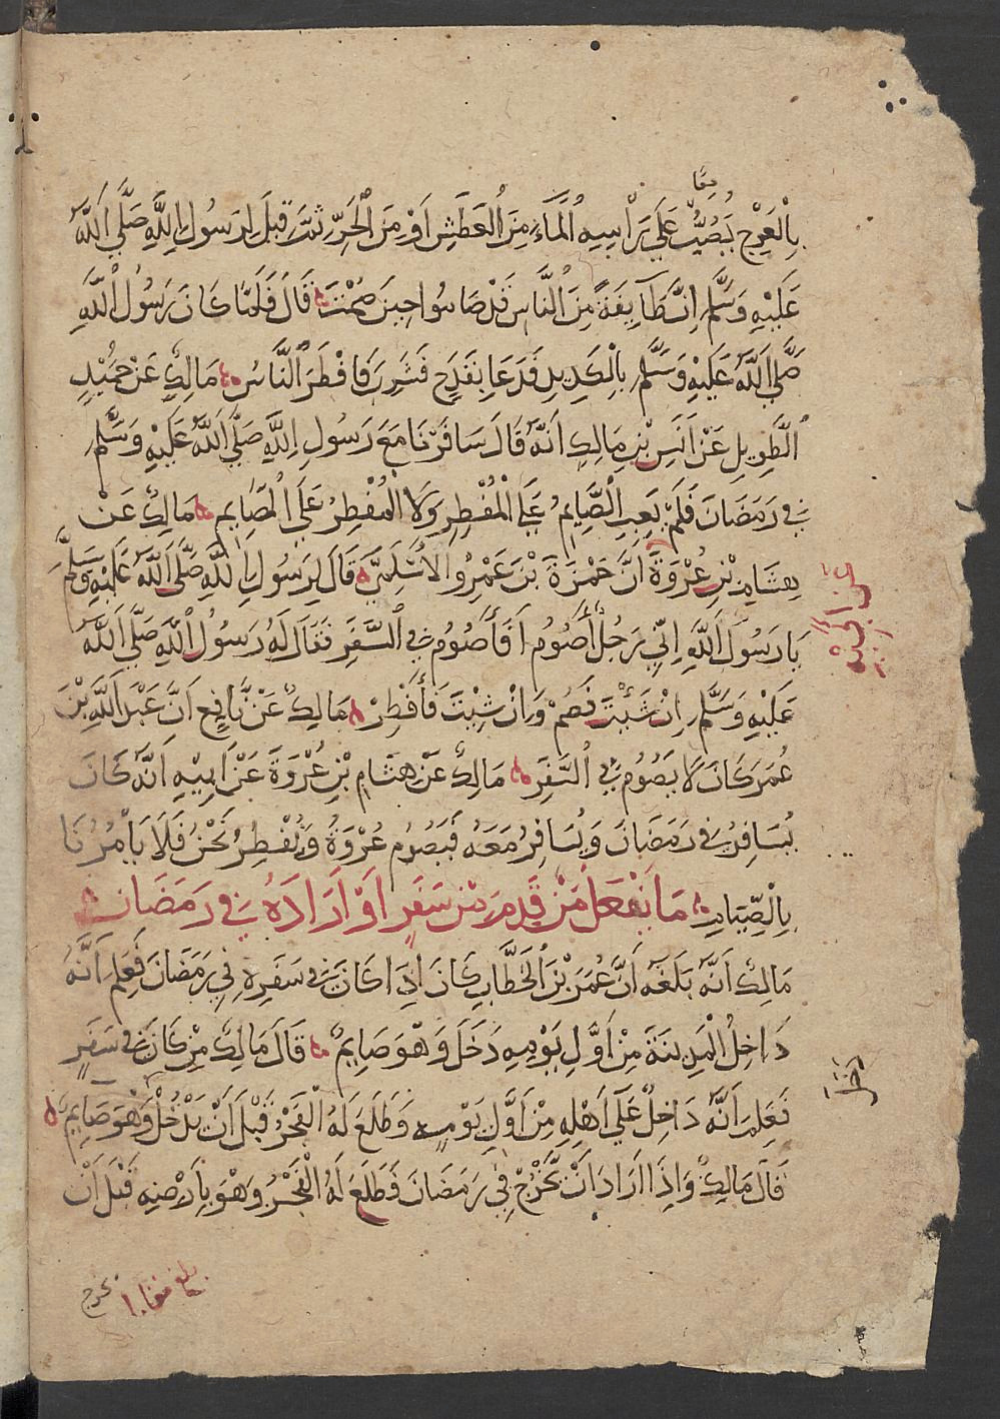 معا
بِالْعَرْجِ يُصَبُّ عَلَى رَأْسِهِ الْمَاءُ مِنَ الْعَطَشِ أَوْ مِنَ الْحَرِّ ثُمَّ قِيلَ لِرَسُولِ اللَّهِ صَلَّى اللَّهُ
عَلَيْهِ وَسَلَّمَ إِنَّ طَآيِفَةً مِنَ النَّاسِ قَدْ صَامُوا حِينَ صُمْتَ قَالَ فَلَمَّا كَانَ رَسُولُ اللَّهِ
صَلَّى اللَّهُ عَلَيْهِ وَسَلَّمَ بِالْكَدِيدِ فَدَعَا بِقَدَحٍ فَشَرِبَ فَافْطَرَ النَّاسُ مَالِكٌ عَنْ حُمَيْدٍ
الطَّوِيلِ عَنْ أَنَسِ بْنِ مَالِكٍ أَنَّهُ قَالَ سَافَرْنَا مَعَ رَسُولِ اللَّهِ صَلَّى اللَّهُ عَلَيْهِ وَسَلَّمَ
فِي رَمَضَانَ فَلَمْ يَعِبِ الصَّايِمُ عَلَى الْمُفْطِرِ وَلَا الْمُفْطِرُ عَلَى الصَّايِمِ مَالِكٌ عَنْ
هِشَامِ بْنِ عُرْوَةَ أَنَّ حَمْزَةَ بْنَ عَمْرٍو الْأَسْلَمِيَّ قَالَ لِرَسُولِ اللَّهِ صَلَّى اللَّهُ عَلَيْهِ وَسَلَّمَ
يَا رَسُولَ اللَّهِ إِنِّي رَجُلٌ أَصُومُ أَفَأَصُومُ فِي السَّفَرِ فَقَالَ لَهُ رَسُولُ اللَّهِ صَلَّى اللَّهُ
عَلَيْهِ وَسَلَّمَ إِنْ شِئْتَ فَصُمْ وَإِنْ شِيْتَ فَأَفْطِرْ مَالِكٌ عَنْ نَافِعٍ أَنَّ عَبْدَ اللَّهِ بْنَ
عُمَرَ كَانَ لَا يَصُومُ فِي السَّفَرِ مَالِكٌ عَنْ هِشَامِ بْنِ عُرْوَةَ عَنْ أَبِيهِ أَنَّهُ كَانَ
يُسَافِرُ فِي رَمَضَانَ وَيُسَافِرُ مَعَهُ فَيَصُومُ عُرْوَةُ وَنُفْطِرُ نَحْنُ فَلَا يَأْمُرُنَا
بِالصِّيَامِ مَا يَفْعَلُ مَنْ قَدِمَ مِنْ سَفَرٍ أَوْ أَرَادَهُ فِي رَمَضَانَ
مَالِكٌ أَنَّهُ بَلَغَهُ أَنَّ عُمَرَ بْنَ الْخَطَّابِ كَانَ إِذَا كَانَ فِي سَفَرِهِ فِي رَمَضَانَ فَعَلِمَ أَنَّهُ
دَاخِلُ الْمَدِينَةَ مِنْ أَوَّلِ يَوْمِهِ دَخَلَ وَهُوَ صَايِمٌ قَالَ مَالِكٌ مَنْ كَانَ فِي سَفَرٍ
فَعَلِمَ أَنَّهُ دَاخِلٌ عَلَى أَهْلِهِ مِنْ أَوَّلِ يَوْمِهِ وَطَلَعَ لَهُ الْفَجْرُ قَبْلَ أَنْ يَدْخُلَ وَهُوَ صَايِمٌ
قَالَ مَالِكٌ وَإِذَا أَرَادَ أَنْ يَخْرُجَ فِي رَمَضَانَ فَطَلَعَ لَهُ الْفَجْرُ وَهْوَ بِأَرْضِهِ قَبْلَ أَنْ
بلغ مقابلة
يخرج